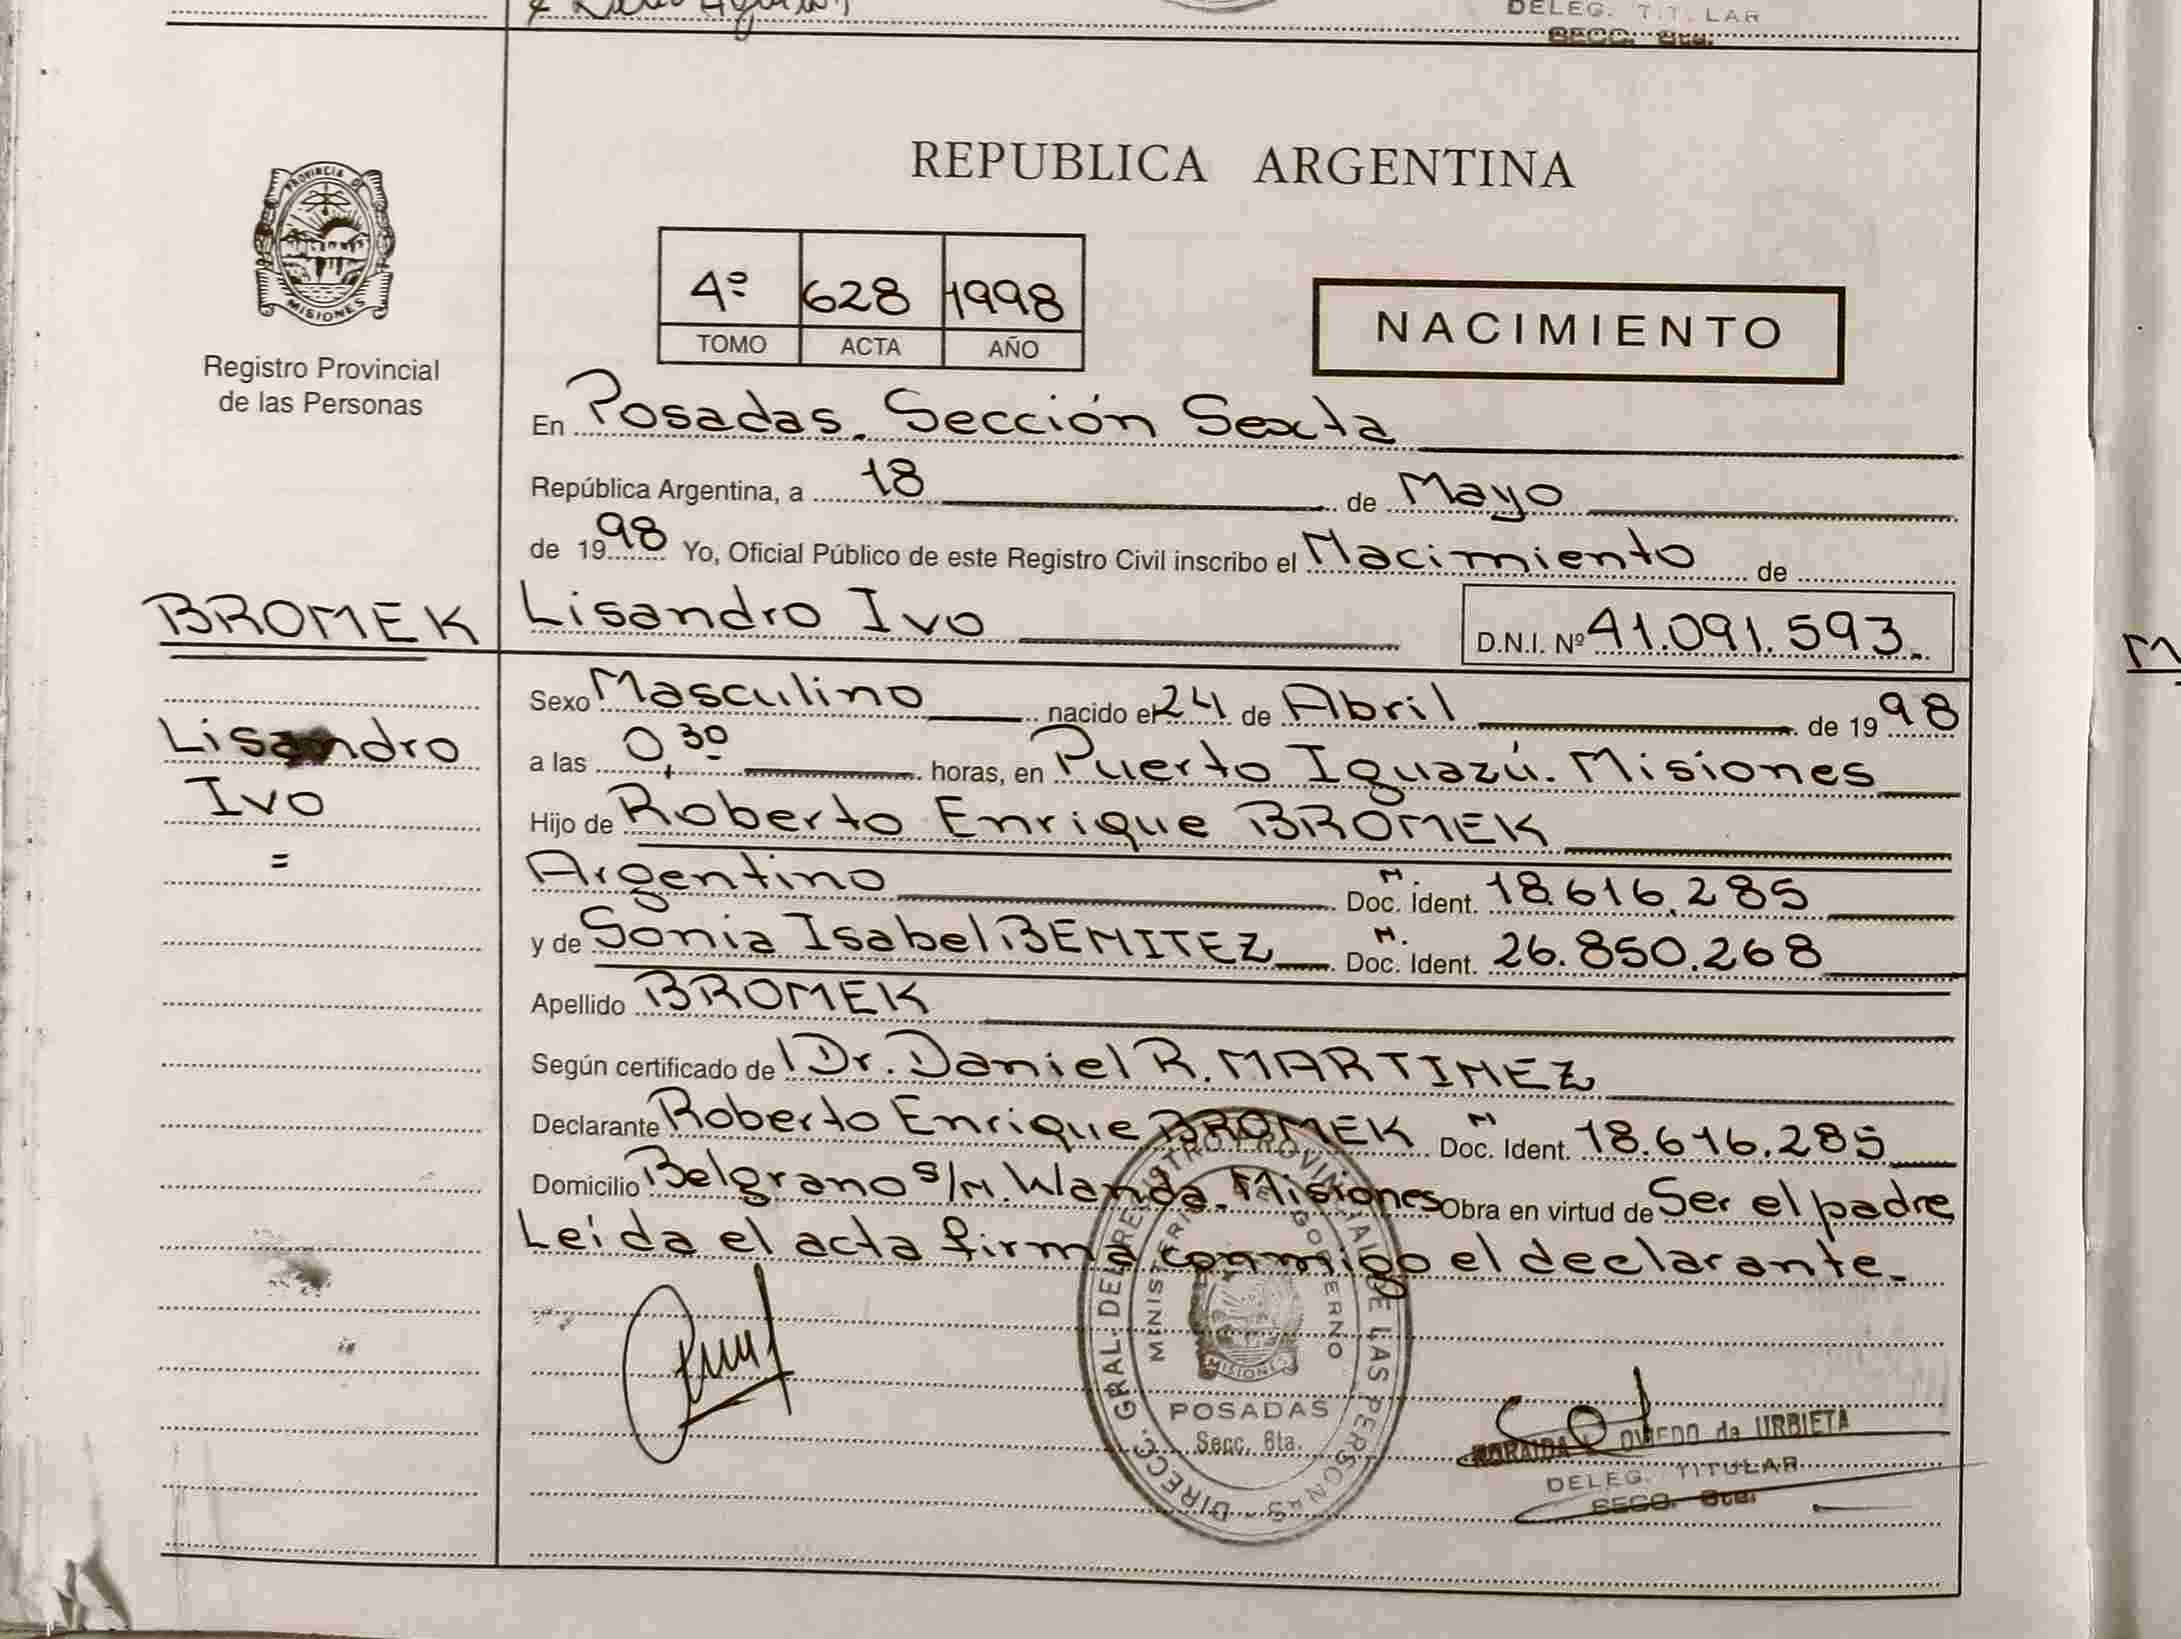 DELEG. T.T. LAR
SECC. 6ta.
PROVINCIA DE
MISIONES
Registro Provincial
de las Personas
REPUBLICA ARGENTINA
4º 628 1998
TOMO ACTA AÑO
NACIMIENTO
En Posadas. Sección Sexta
República Argentina, a 18 de Mayo
de 1998 Yo, Oficial Público de este Registro Civil inscribo el Nacimiento de
BROMEK Lisandro Ivo D.N.I. Nº 41.091.593.
Sexo Masculino nacido el 24 de Abril de 1998
Lisandro
a las 0,30 horas, en Puerto Iguazú. Misiones
Ivo
Hijo de Roberto Enrique BROMEK
=
Argentino M. Doc. Ident. 18.616.285
y de Sonia Isabel BENITEZ M. Doc. Ident. 26.850.268
Apellido BROMEK
Según certificado de Dr. Daniel R. MARTINEZ
Declarante Roberto Enrique BROMEK M Doc. Ident. 18.616.285
Domicilio Belgrano s/n. Wanda. Misiones Obra en virtud de Ser el padre
Leída el acta firma conmigo el declarante.
DIRECC. GRAL. DEL REGISTRO PROVINCIAL DE LAS PERSONAS
MINISTERIO DE GOBIERNO
MISIONES
POSADAS
Secc. 6ta.
OVIEDO de URBIETA
DELEG. TITULAR
SECC. 6ta.